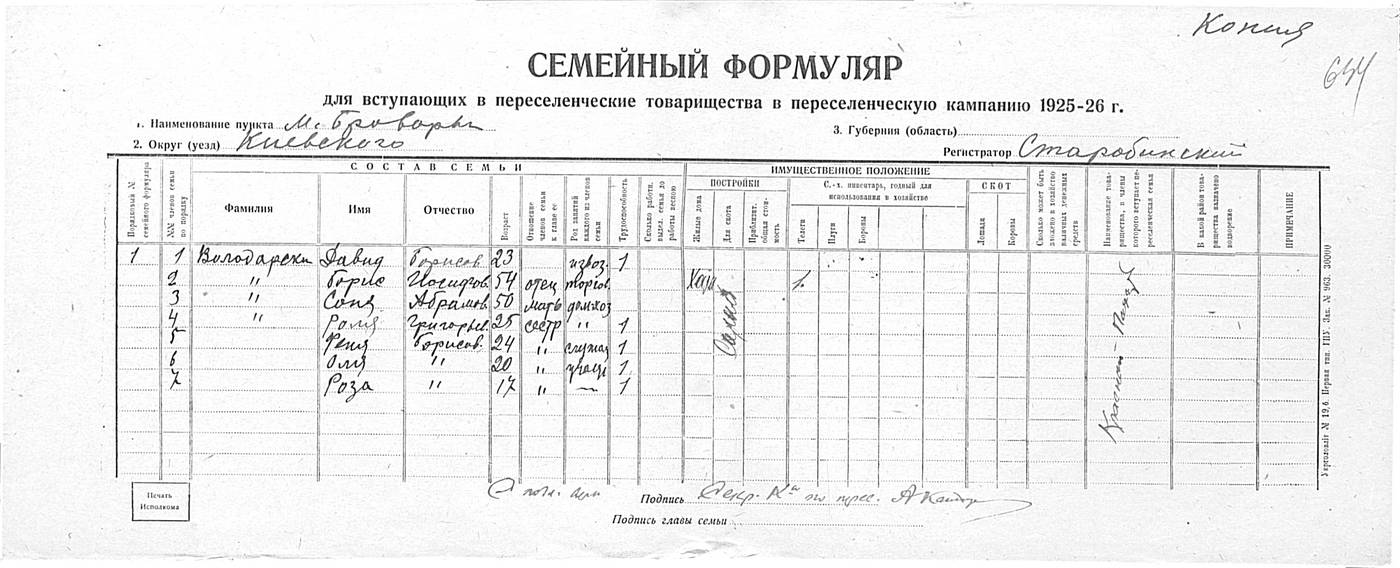 Копия
644
СЕМЕЙНЫЙ ФОРМУЛЯР
для вступающих в переселенческие товарищества в переселенческую кампанию 1925-26 г.
1. Наименование пункта м. Бровары
3. Губерния (область)
2. Округ (уезд) Киевского
Регистратор Старобинский
СОСТАВ СЕМЬИ
ИМУЩЕСТВЕННОЕ ПОЛОЖЕНИЕ
Порядковый № семейного формуляра
№№ членов семьи по порядку
Фамилия
Имя
Отчество
Возраст
Отношение членов семьи к главе ее
Род занятий каждого из членов семьи
Трудоспособность
Сколько работн. выдел. семья до работы весною
ПОСТРОЙКИ
Жилые дома
Для скота
Приблизит. общая стоимость
С.-х. инвентарь, годный для использования в хозяйстве
Телеги
Плуги
Бороны
СКОТ
Лошади
Коровы
Сколько может быть вложено в хозяйство наличных денежных средств
Наименование товарищества, в члены которого вступает переселенческая семья
В какой район товарищества назначено водворение
ПРИМЕЧАНИЕ
1 1 Володарски Давид Борисов 23 извоз. 1
2 " Борис Иосифов. 54 отец торгов. Хата 1.
3 " Соня Абрамов. 50 мать домхоз
4 " Роля Григорьев. 25 сестр " 1
5 Феня Борисов. 24 " служащ 1
6 Оля " 20 " учащ 1
7 Роза " 17 " — 1
Сарай
Красный - Пахарь
Печать Исполкома
С подл. верн
Подпись Секр. К-та по перес.
Подпись главы семьи
Укрголовліт № 19,6. Первая тип. ГПУ. Зак. № 963. 30000